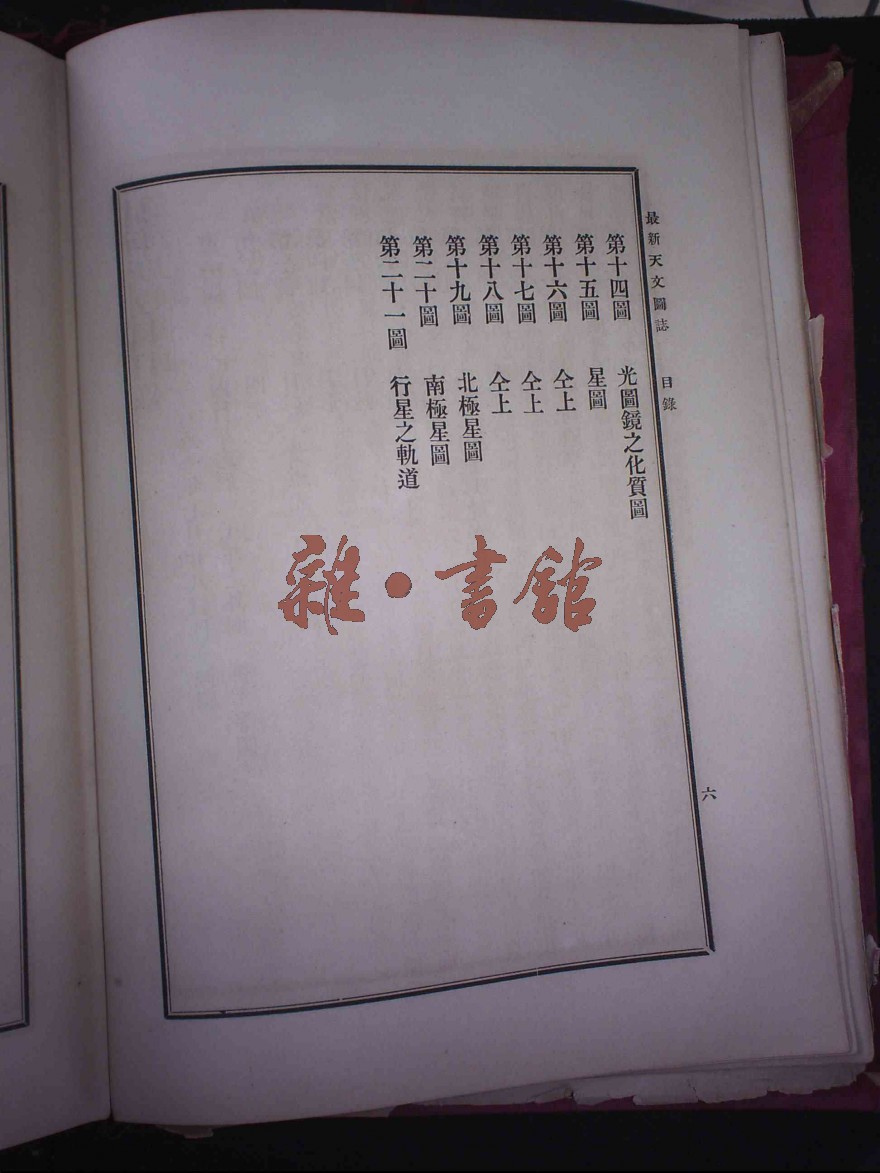 最新天文圖誌 目錄 六
第十四圖 光圖鏡之化質圖
第十五圖 星圖
第十六圖 仝上
第十七圖 仝上
第十八圖 仝上
第十九圖 北極星圖
第二十圖 南極星圖
第二十一圖 行星之軌道
雜·書館